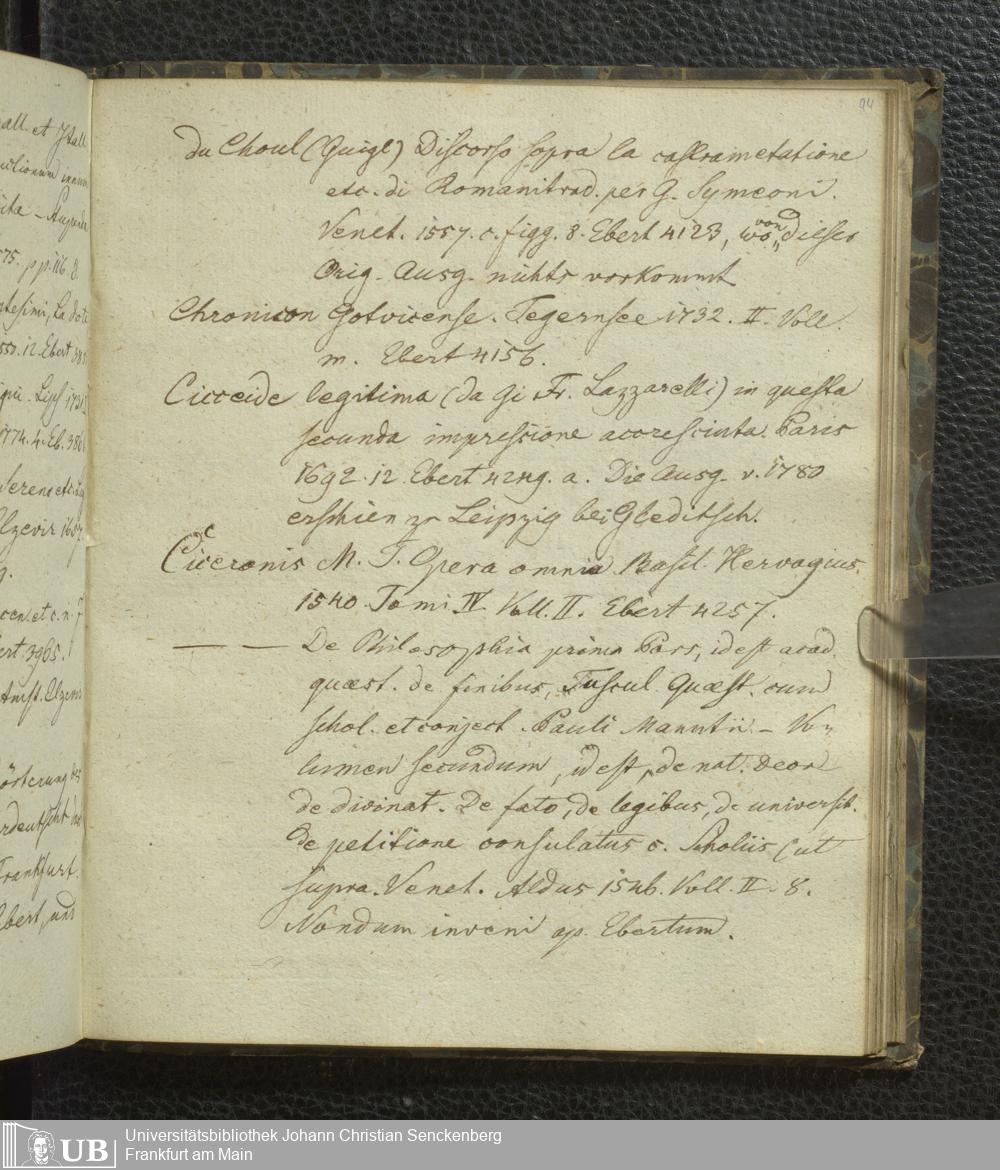 94
du Choul (Guigl) Discorso sopra la castrametatione
etc. di Romani trad. per G. Symeoni.
Venet. 1557. c. figg. 8. Ebert 4123, wo von dieser
Orig. Ausg. nichts vorkommt
Chronicon Gotvicense. Tegernsee 1732. II. Voll.
m. Ebert 4156.
Cicceide legitima (da Gi Fr. Lazzarelli) in questa
secunda impressione accresciuta. Paris
1692. 12. Ebert 4249. a. Die Ausg. v. 1780
erschien zu Leipzig bei Gleditsch.
Ciceronis M. T. Opera omnia Basil. Hervagius.
1540. Tomi IV. Voll. II. Ebert 4257.
— — De Philosophia prima Pars, id est acad.
quæst. de finibus, Tuscul. Quæst. cum
schol. et conject. Pauli Manutii. - Vo-
lumen secundum, id est, de nat. Deor
de divinat. De fato, de legibus, de universit.
de petitione consulatus c. Scholiis (ut
supra. Venet. Aldus 1546. Voll. II. 8.
Nondum inveni ap. Ebertum.
all. et Ital
ita - 
75. pp. 116. 8.
557. 12. Ebert
Lips 1731
1774. 4. Eb. 386
Serena etc.
Elzevir 1657
ert 3965.
Amst. Elzevir
örterung des
Frankfurt.
Ebert, und
UB
Universitätsbibliothek Johann Christian Senckenberg
Frankfurt am Main